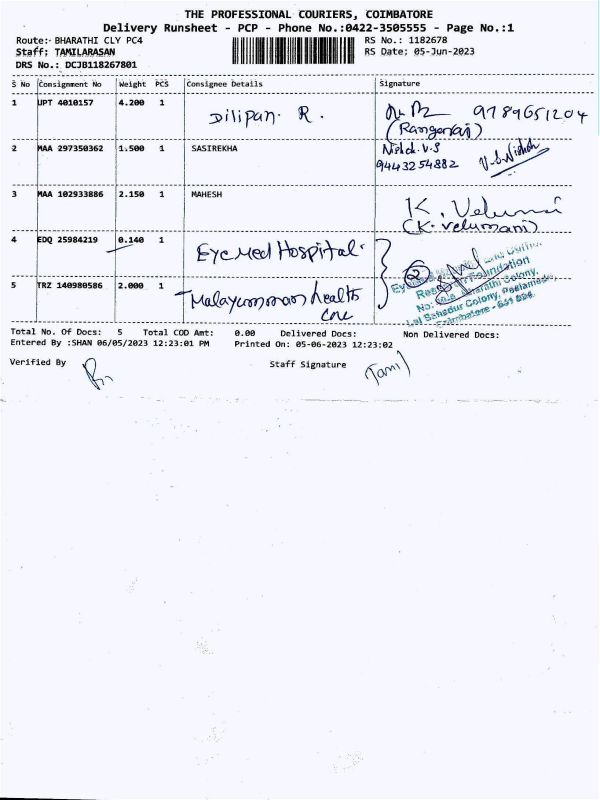 THE PROFESSIONAL COURIERS, COIMBATORE
Delivery Runsheet - PCP - Phone No.:0422-3505555 - Page No.:1
Route:- BHARATHI CLY PC4 RS No.: 1182678
Staff: TAMILARASAN RS Date: 05-Jun-2023
DRS No.: DCJB118267801
S No Consignment No Weight PCS Consignee Details Signature
1 UPT 4010157 4.200 1 Dilipan. R. 9789651204
(Rangaraj)
2 MAA 297350362 1.500 1 SASIREKHA Nishch. V.S
9443254882 V.S.Nishch
3 MAA 102933886 2.150 1 MAHESH K. Velumani
(K. velumani)
4 EDQ 25984219 0.140 1 Eye Med Hospital 2
Research Foundation
5 TRZ 140980586 2.000 1 Malayamman health care
Bharathi Colony,
Lal Bahadur Colony, Peelamedu,
Coimbatore - 641 004.
Total No. Of Docs: 5 Total COD Amt: 0.00 Delivered Docs: Non Delivered Docs:
Entered By :SHAN 06/05/2023 12:23:01 PM Printed On: 05-06-2023 12:23:02
Verified By Staff Signature Tamil